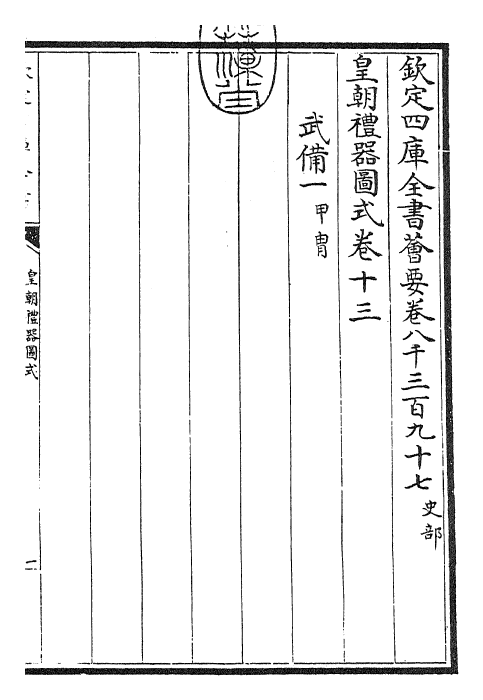 欽定四庫全書薈要卷八千三百九十七 史部
皇朝禮器圖式卷十三
武備一 甲胄
皇朝禮器圖式
一